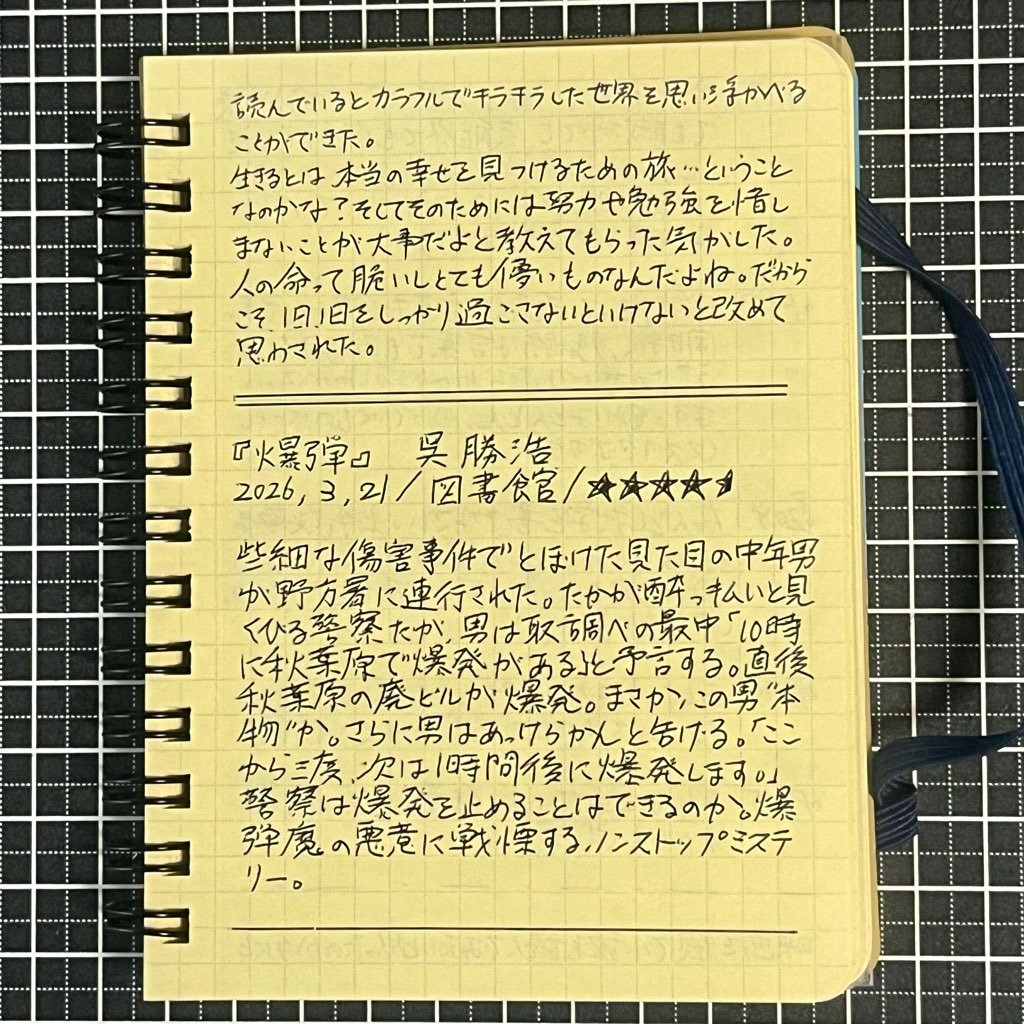 読んでいるとカラフルでキラキラした世界を思い浮かべる
ことができた。
生きるとは本当の幸せを見つけるための旅…ということ
なのかな？そしてそのためには努力や勉強を惜し
まないことが大事だよと教えてもらった気がした。
人の命って脆いしとても儚いものなんだよね。だから
こそ、1日1日をしっかり過ごさないといけないと改めて
思わされた。
『爆弾』 呉勝浩
2026,3,21/図書館/★★★★⯨
些細な傷害事件でとぼけた見た目の中年男
が野方署に連行された。たかが酔っ払いと見
くびる警察だが、男は取調べの最中「10時
に秋葉原で爆発がある」と予言する。直後
秋葉原の廃ビルが爆発。まさか、この男“本
物”か。さらに男はあっけらかんと告げる。「ここ
から三度、次は1時間後に爆発します。」
警察は爆発を止めることはできるのか。爆
弾魔の悪意に戦慄する、ノンストップミステ
リー。